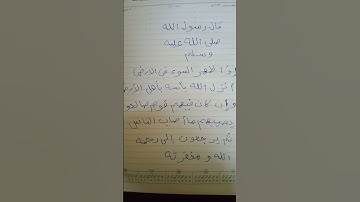 قال رسول الله
صلى الله عليه
وسلم
إذا ظهر السوء في الارض
أنزل الله بأسه بأهل الأرض
وإن كان فيهم قوم صالحو
يصيبهم ما أصاب الناس
ثم يرجعون الى رحمة
الله ومغفرته